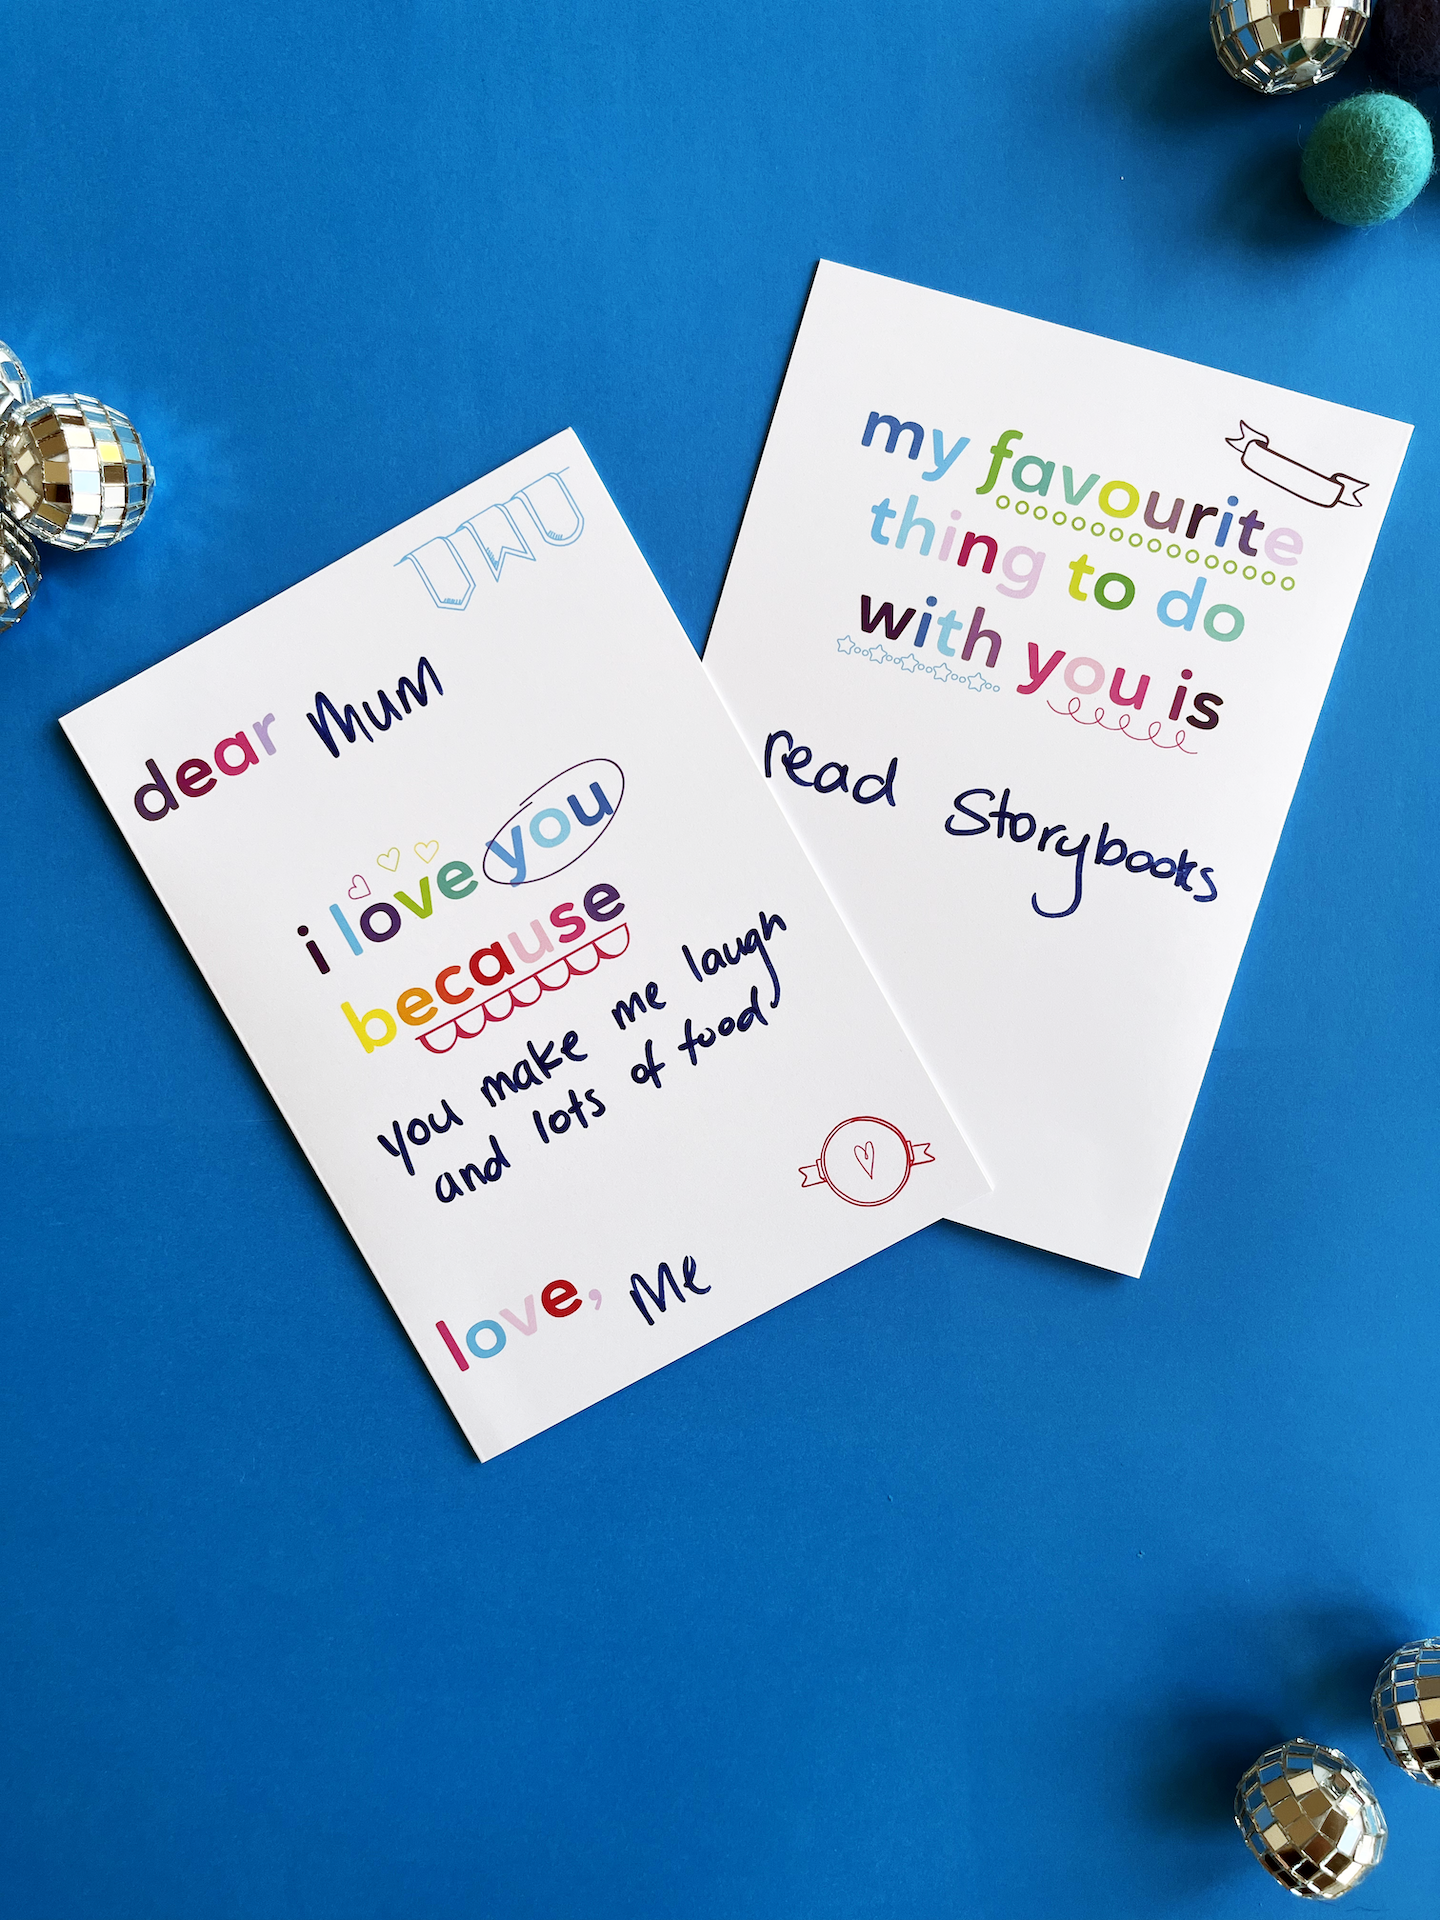 dear Mum
i love you
because
you make me laugh
and lots of food
love, Me
my favourite
thing to do
with you is
read Storybooks